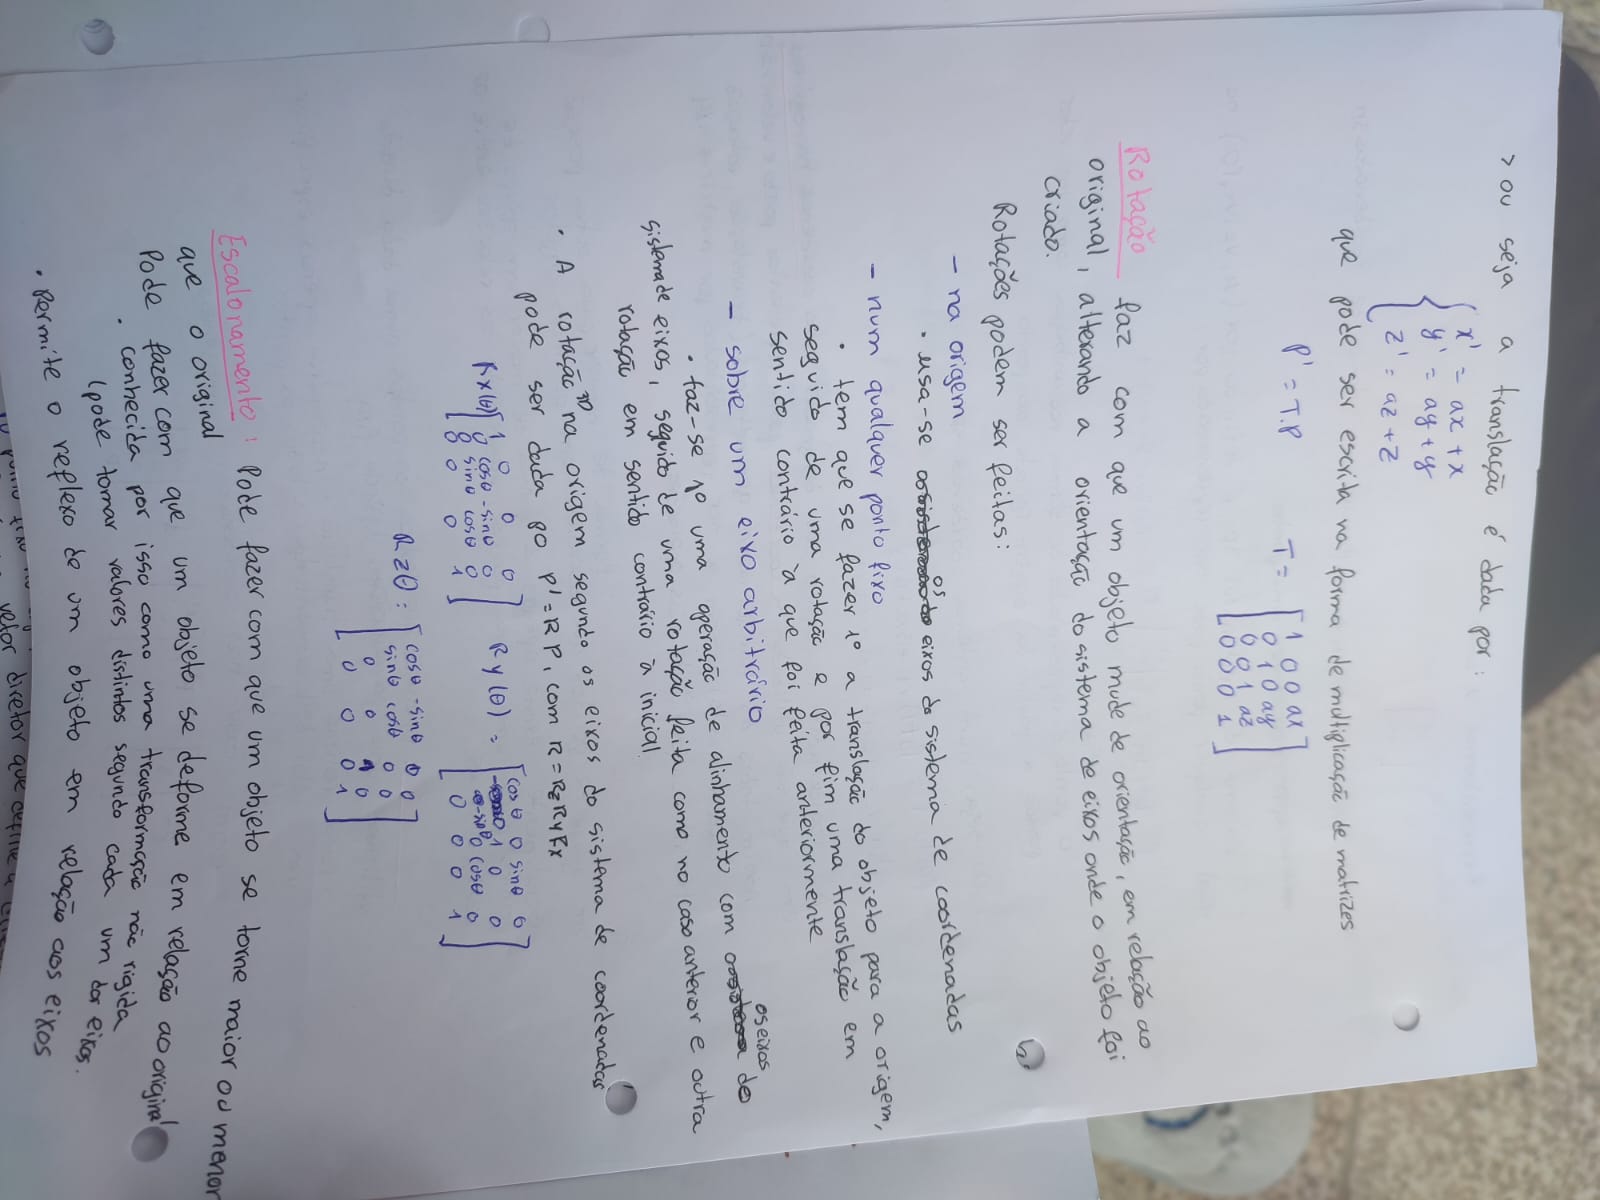 > ou seja a translação é dada por:
x' = ax + x
y' = ay + y
z' = az + z
que pode ser escrita na forma de multiplicação de matrizes
P' = T.P T =
1 0 0 ax
0 1 0 ay
0 0 1 az
0 0 0 1
Rotação faz com que um objeto mude de orientação, em relação ao
original, alterando a orientação do sistema de eixos onde o objeto foi
criado.
Rotações podem ser feitas:
- na origem
• usa-se os eixos do sistema de coordenadas
- num qualquer ponto fixo
• tem que se fazer 1º a translação do objeto para a origem,
seguido de uma rotação e por fim uma translação em
sentido contrário à que foi feita anteriormente
- sobre um eixo arbitrário
• faz-se 1º uma operação de alinhamento com os eixos do
sistema de eixos, seguido de uma rotação feita como no caso anterior e outra
rotação em sentido contrário à inicial.
• A rotação 3D na origem segundo os eixos do sistema de coordenadas
pode ser dada po P' = R P, com R = RzRyRx
Rx(θ)
1 0 0 0
0 cosθ -sinθ 0
0 sinθ cosθ 0
0 0 0 1
Ry(θ) =
cosθ 0 sinθ 0
0 1 0 0
-sinθ 0 cosθ 0
0 0 0 1
Rzθ:
cosθ -sinθ 0 0
sinθ cosθ 0 0
0 0 1 0
0 0 0 1
Escalonamento: Pode fazer com que um objeto se torne maior ou menor
que o original
Pode fazer com que um objeto se deforme em relação ao original
• conhecida por isso como uma transformação não rígida
(pode tomar valores distintos segundo cada um dos eixos.
• Permite o reflexo de um objeto em relação aos eixos
vetor diretor que define a